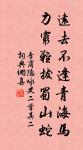 遠去不逢青海馬
力窮難拔蜀山蛇
李商隱咏史二首其二
詞典網書